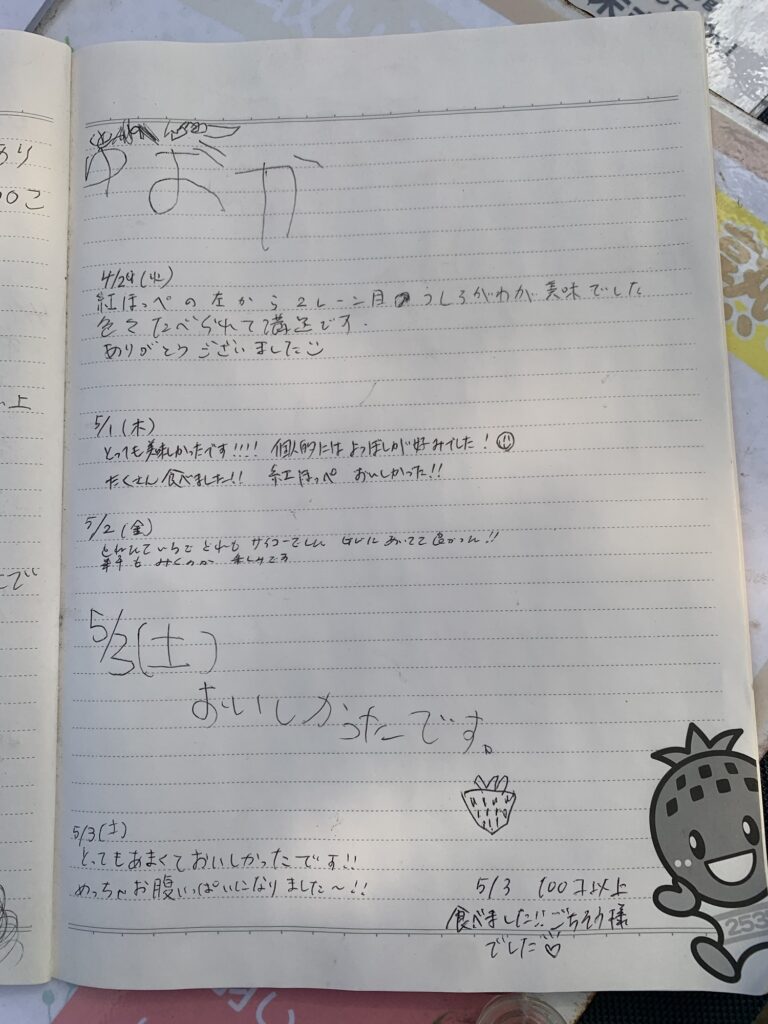 り
00こ
上
で
ゆおが
4/29(火)
紅ほっぺの左から2レーン目のうしろがわが美味でした
色々たべられて満足です.
ありがとうございました
5/1(木)
とっても美味しかったです!!!! 個人的にはよつぼしが好みでした!
たくさん食べました!! 紅ほっぺ おいしかった!!
5/2(金)
サイコーでした
5/3(土)
おいしかったです。
5/3(土)
とってもあまくておいしかったです!!
めっちゃお腹いっぱいになりました〜!!
5/3 100コ以上
食べました!!ごちそう様
でした♡